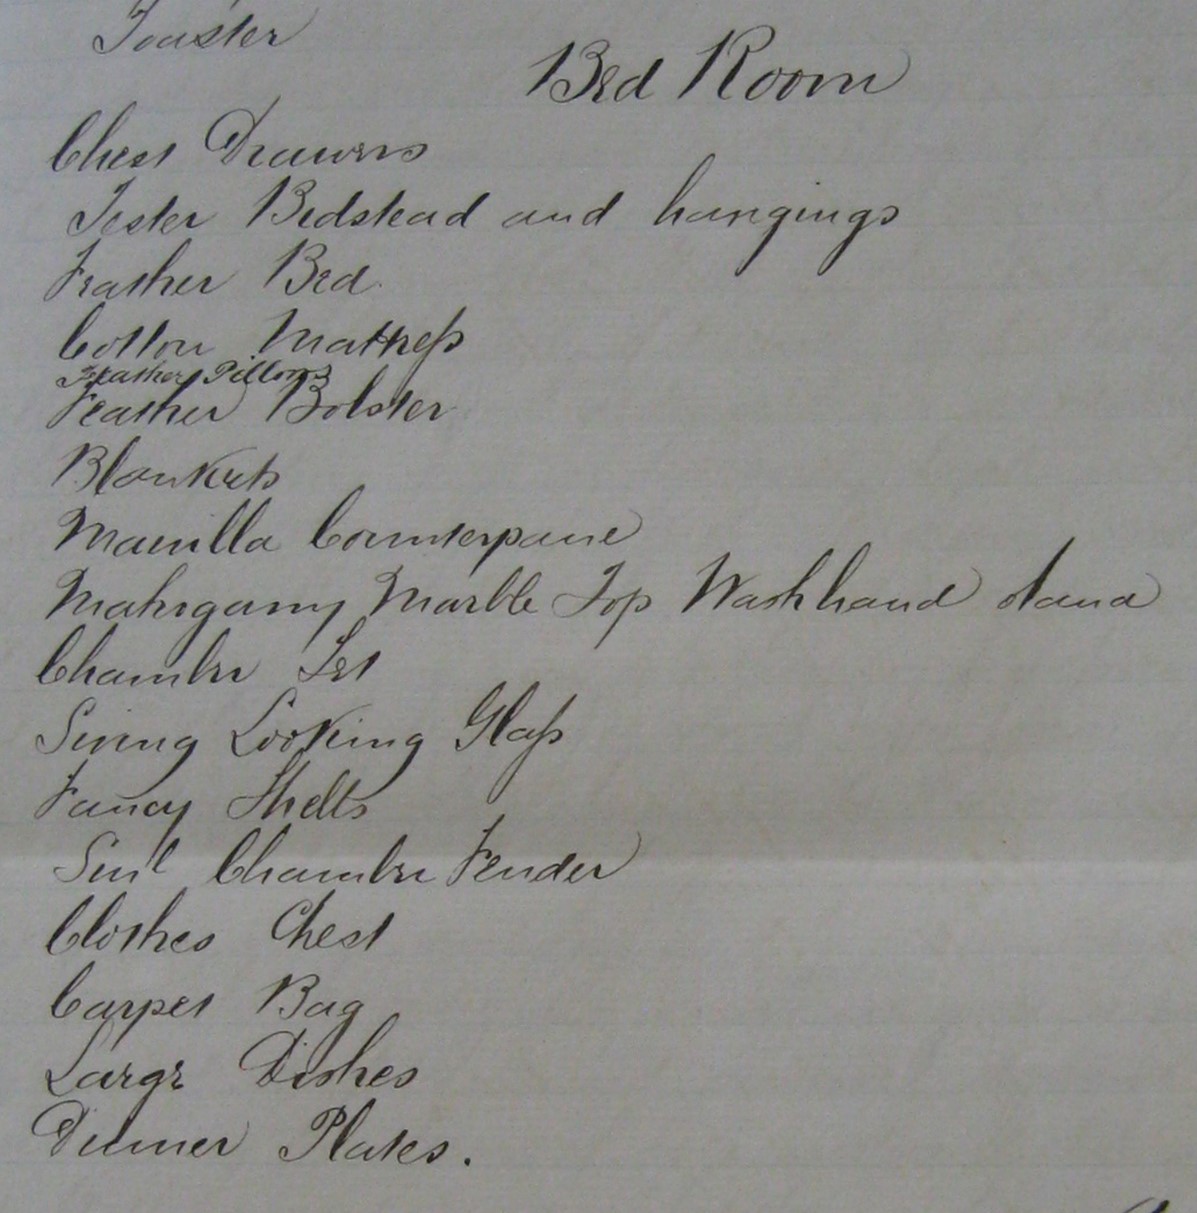 Toaster
Bed Room
Chest Drawers
Tester Bedstead and hangings
Feather Bed.
Cotton Mattress
Feather Pillows
Feather Bolster
Blankets
Manilla Counterpane
Mahogany Marble Top Wash hand stand
Chamber Set
Swing Looking Glass
Fancy Shells
Chamber Fender
Clothes Chest
Carpet Bag
Large Dishes
Dinner Plates.